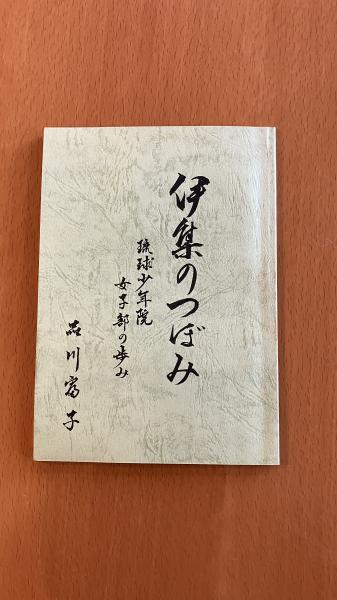 伊集のつぼみ
琉球少年院
女子部の歩み
品川富子